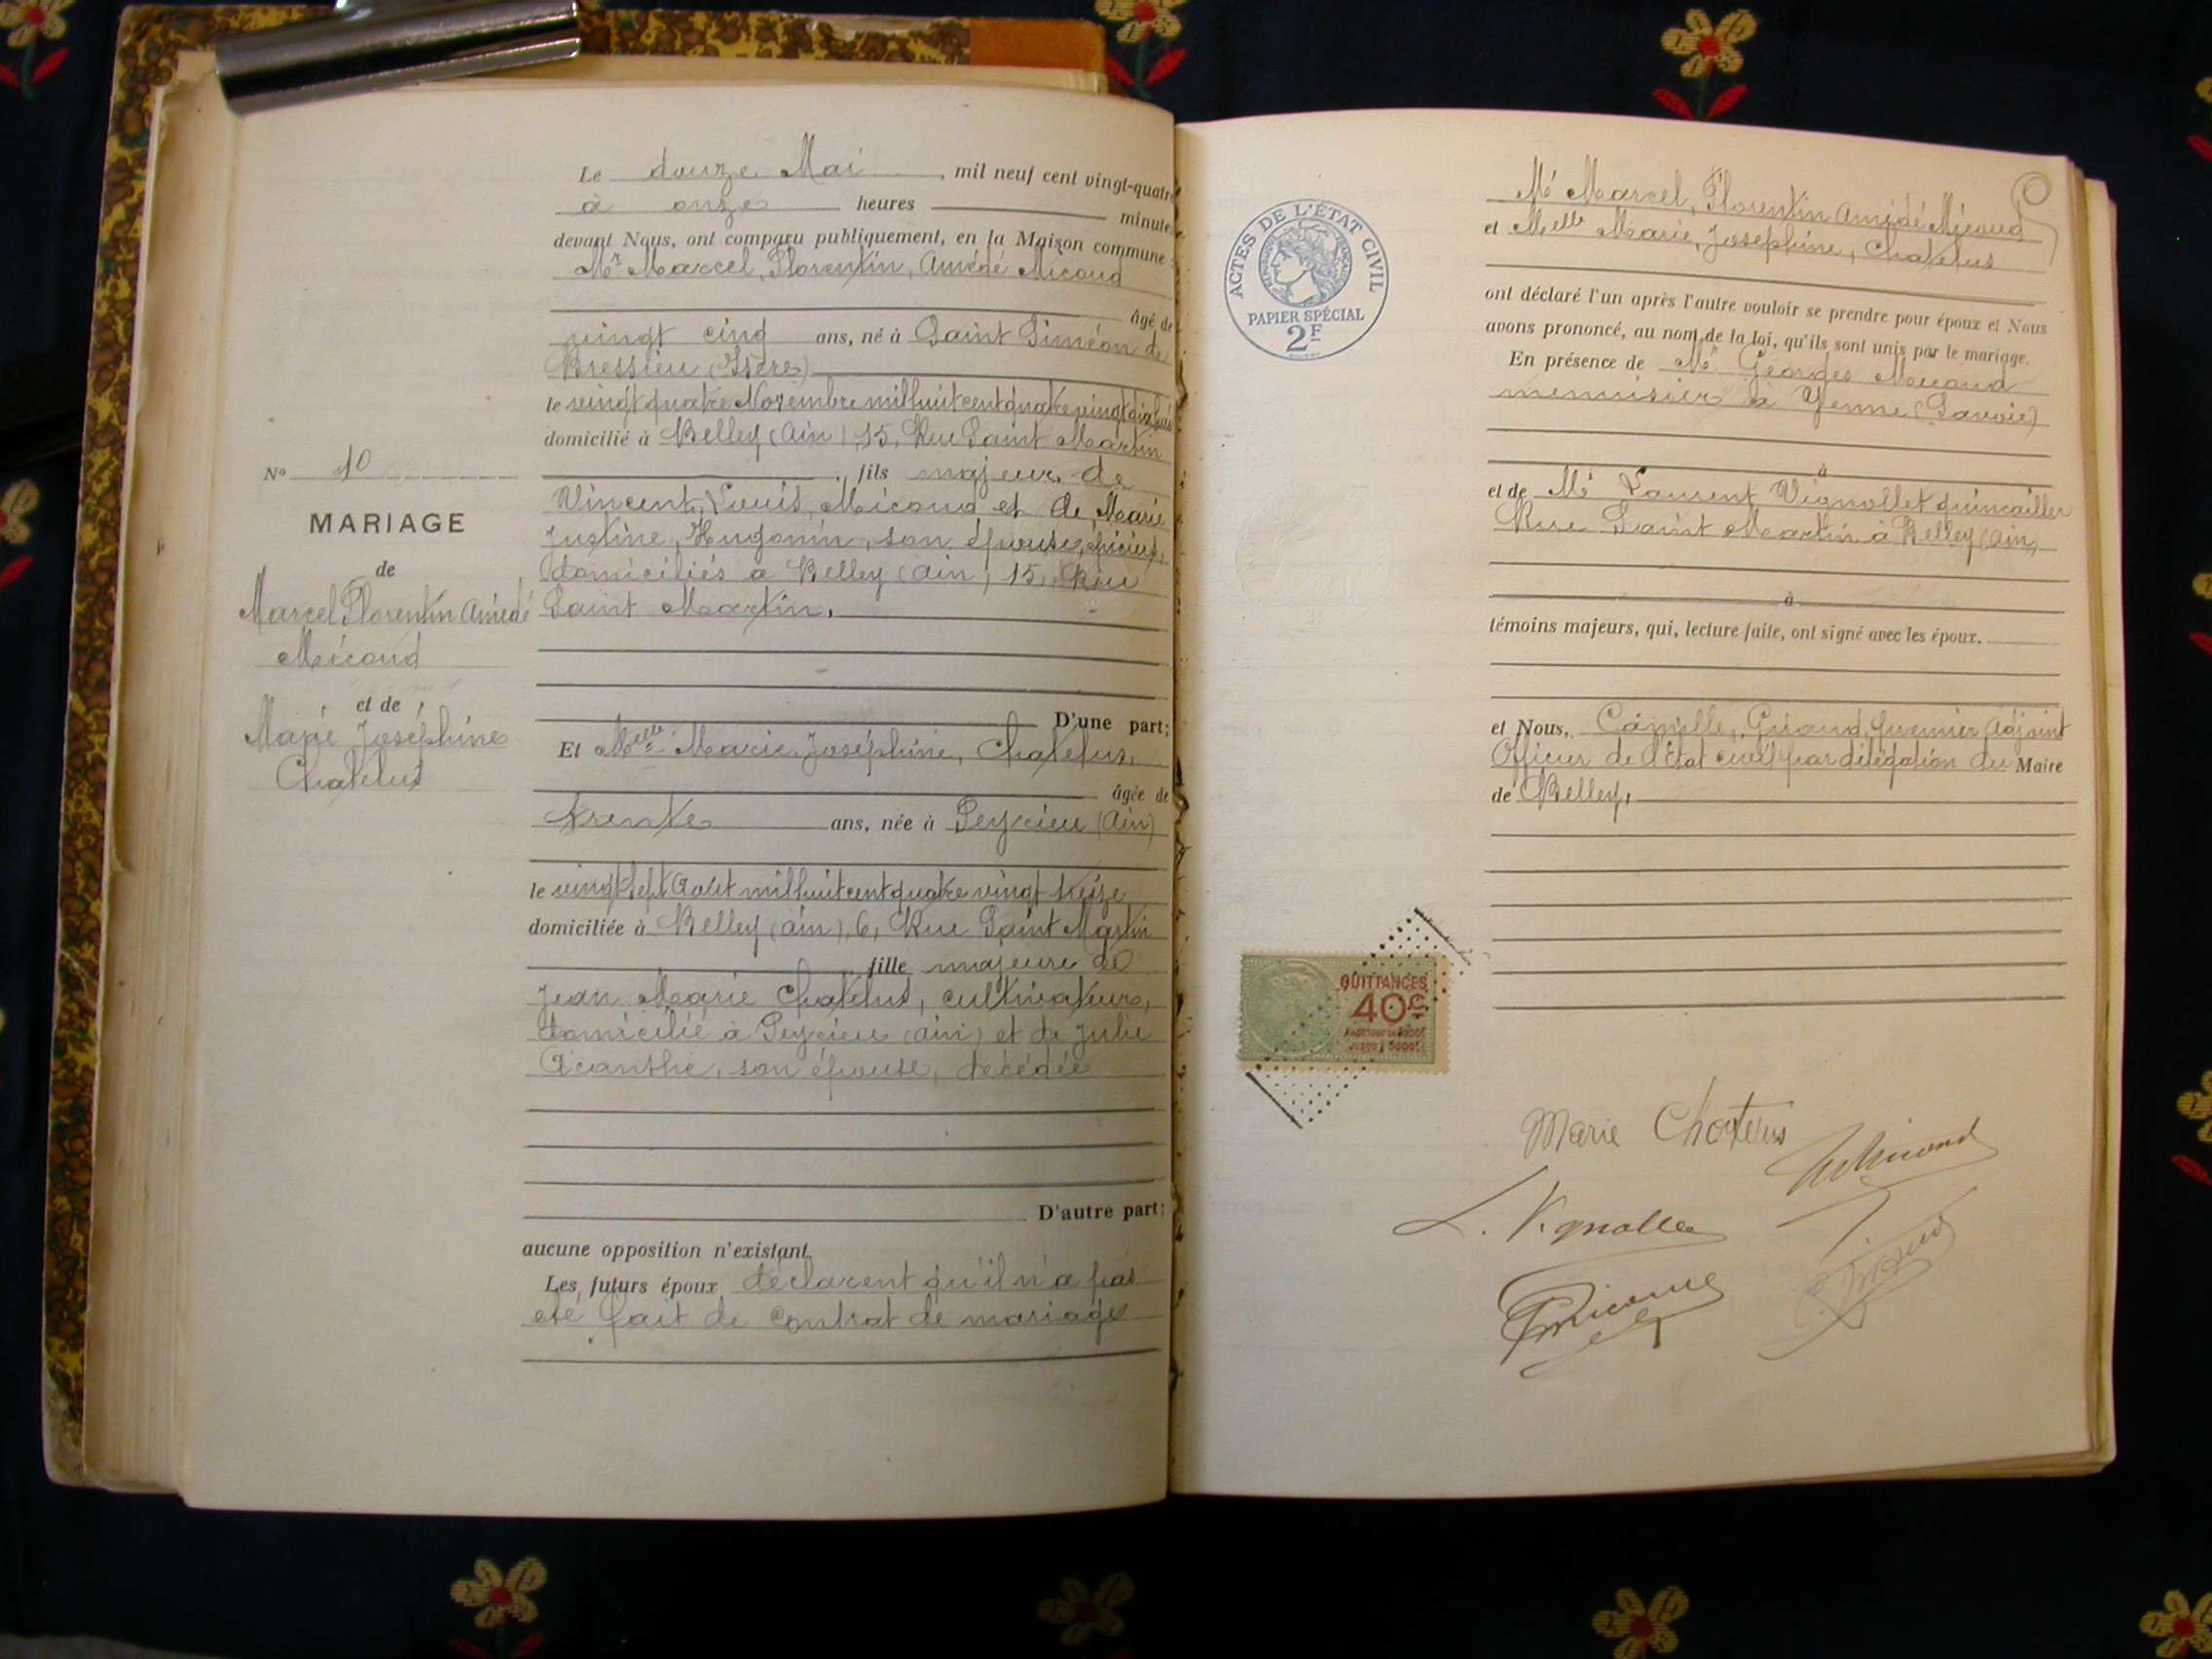 Le douze Mai, mil neuf cent vingt-quatre
à onze heures minutes
devant Nous, ont comparu publiquement, en la Maison commune :
Mr Marcel, Florentin, Amédé Micoud
âgé de
vingt cinq ans, né à Saint Siméon de
Bressieu (Isère)
le vingt quatre Novembre mil huit cent quatre vingt dix huit
domicilié à Belley (Ain) 15, Rue Saint Martin
, fils majeur de
Vincent, Louis, Micoud et de Marie
Justine, Hugonin, son épouse,
domiciliés à Belley (Ain) 15, Rue
Saint Martin.
D'une part;
Et Melle Marie, Joséphine, Chatelus,
âgée de
trente ans, née à Peyrieu (Ain)
le vingt sept Août mil huit cent quatre vingt treize
domiciliée à Belley (Ain), 6, Rue Saint Martin
fille majeure de
Jean Marie Chatelus, cultivateur,
domicilié à Peyrieu (Ain) et de Julie
Acanthe, son épouse, décédée
D'autre part;
aucune opposition n'existant.
Les futurs époux déclarent qu'il n'a pas
été fait de contrat de mariage
No 10
MARIAGE
de
Marcel Florentin Amédé
Micoud
et de
Marie Joséphine
Chatelus
ACTES DE L'ÉTAT CIVIL
PAPIER SPÉCIAL
2F
Mr Marcel, Florentin Amédé Micoud
et Melle Marie, Joséphine, Chatelus
ont déclaré l'un après l'autre vouloir se prendre pour époux et Nous
avons prononcé, au nom de la loi, qu'ils sont unis par le mariage.
En présence de Mr Georges Micoud
menuisier à Yenne (Savoie)
à
et de Mr Laurent Vignollet quincailler
Rue Saint Martin à Belley (Ain)
à
témoins majeurs, qui, lecture faite, ont signé avec les époux.
et Nous, Camille, premier Adjoint
Officier de l'état civil par délégation du Maire
de Belley,
QUITTANCES
40c
Marie Chatelus
Micoud
L. Vignollet
Micoud